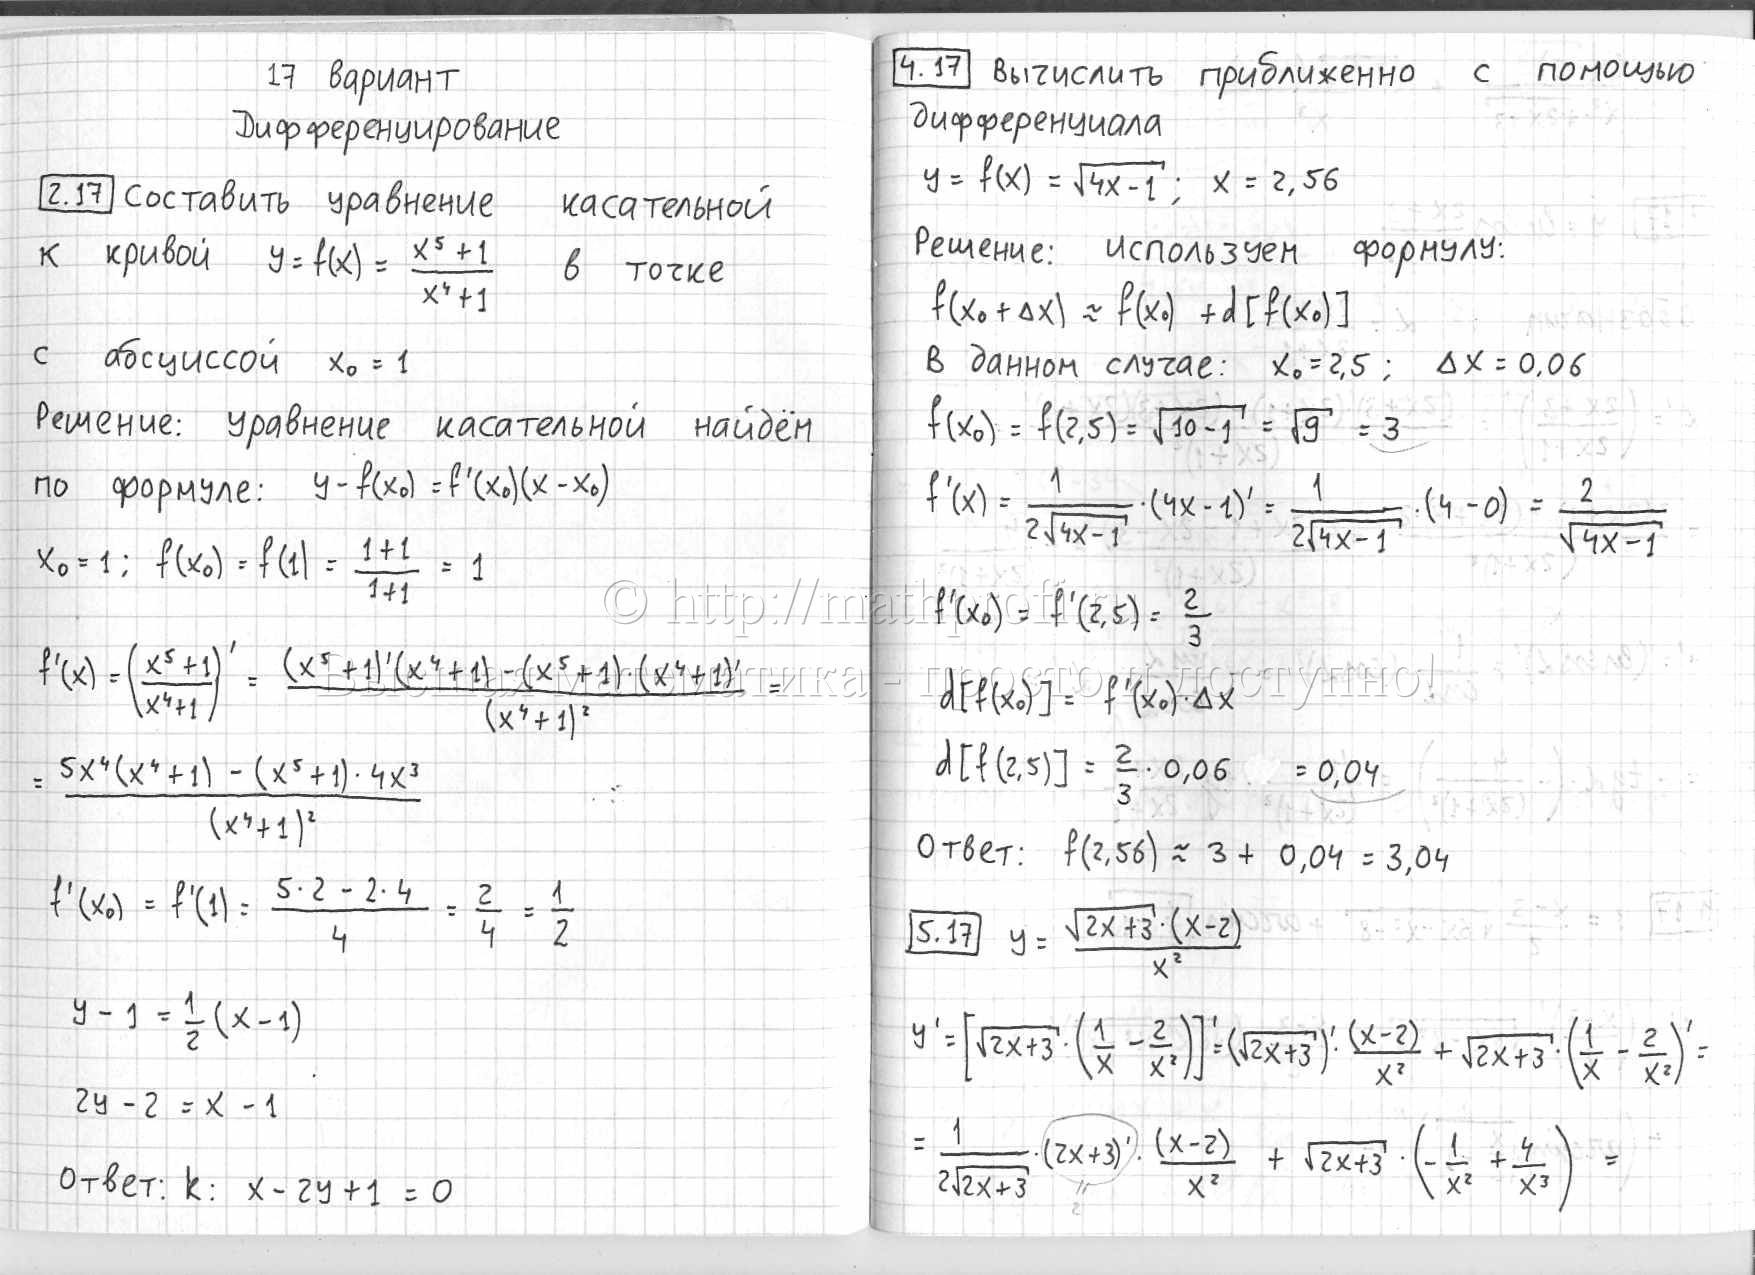 17 вариант
Дифференцирование
2.17 Составить уравнение касательной
к кривой y = f(x) = (x⁵+1)/(x⁴+1) в точке
с абсциссой x₀ = 1
Решение: уравнение касательной найдём
по формуле: y - f(x₀) = f'(x₀)(x - x₀)
x₀ = 1; f(x₀) = f(1) = (1+1)/(1+1) = 1
f'(x) = ((x⁵+1)/(x⁴+1))' = ((x⁵+1)'(x⁴+1) - (x⁵+1)·(x⁴+1)')/(x⁴+1)² =
= (5x⁴(x⁴+1) - (x⁵+1)·4x³)/(x⁴+1)²
f'(x₀) = f'(1) = (5·2 - 2·4)/4 = 2/4 = 1/2
y - 1 = 1/2 (x - 1)
2y - 2 = x - 1
Ответ: k: x - 2y + 1 = 0
4.17 Вычислить приближенно с помощью
дифференциала
y = f(x) = √(4x-1); x = 2,56
Решение: используем формулу:
f(x₀ + Δx) ≈ f(x₀) + d[f(x₀)]
В данном случае: x₀ = 2,5; Δx = 0,06
f(x₀) = f(2,5) = √(10-1) = √9 = 3
f'(x) = 1/(2√(4x-1)) · (4x-1)' = 1/(2√(4x-1)) · (4-0) = 2/√(4x-1)
f'(x₀) = f'(2,5) = 2/3
d[f(x₀)] = f'(x₀)·Δx
d[f(2,5)] = 2/3 · 0,06 = 0,04
Ответ: f(2,56) ≈ 3 + 0,04 = 3,04
5.17 y = (√(2x+3)·(x-2))/x²
y' = [√(2x+3)·(1/x - 2/x²)]' = (√(2x+3))'·(x-2)/x² + √(2x+3)·(1/x - 2/x²)' =
= 1/(2√(2x+3)) · (2x+3)' · (x-2)/x² + √(2x+3) · (-1/x² + 4/x³) =
© http://mathprofi.ru
Высшая математика - просто и доступно!